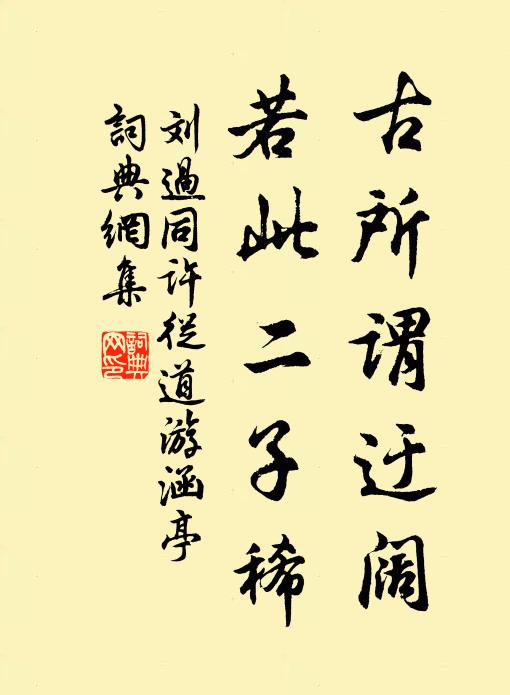 古所谓迂阔
若此二子稀
刘過同许從道游涵亭
詞典網集
詞典
网印